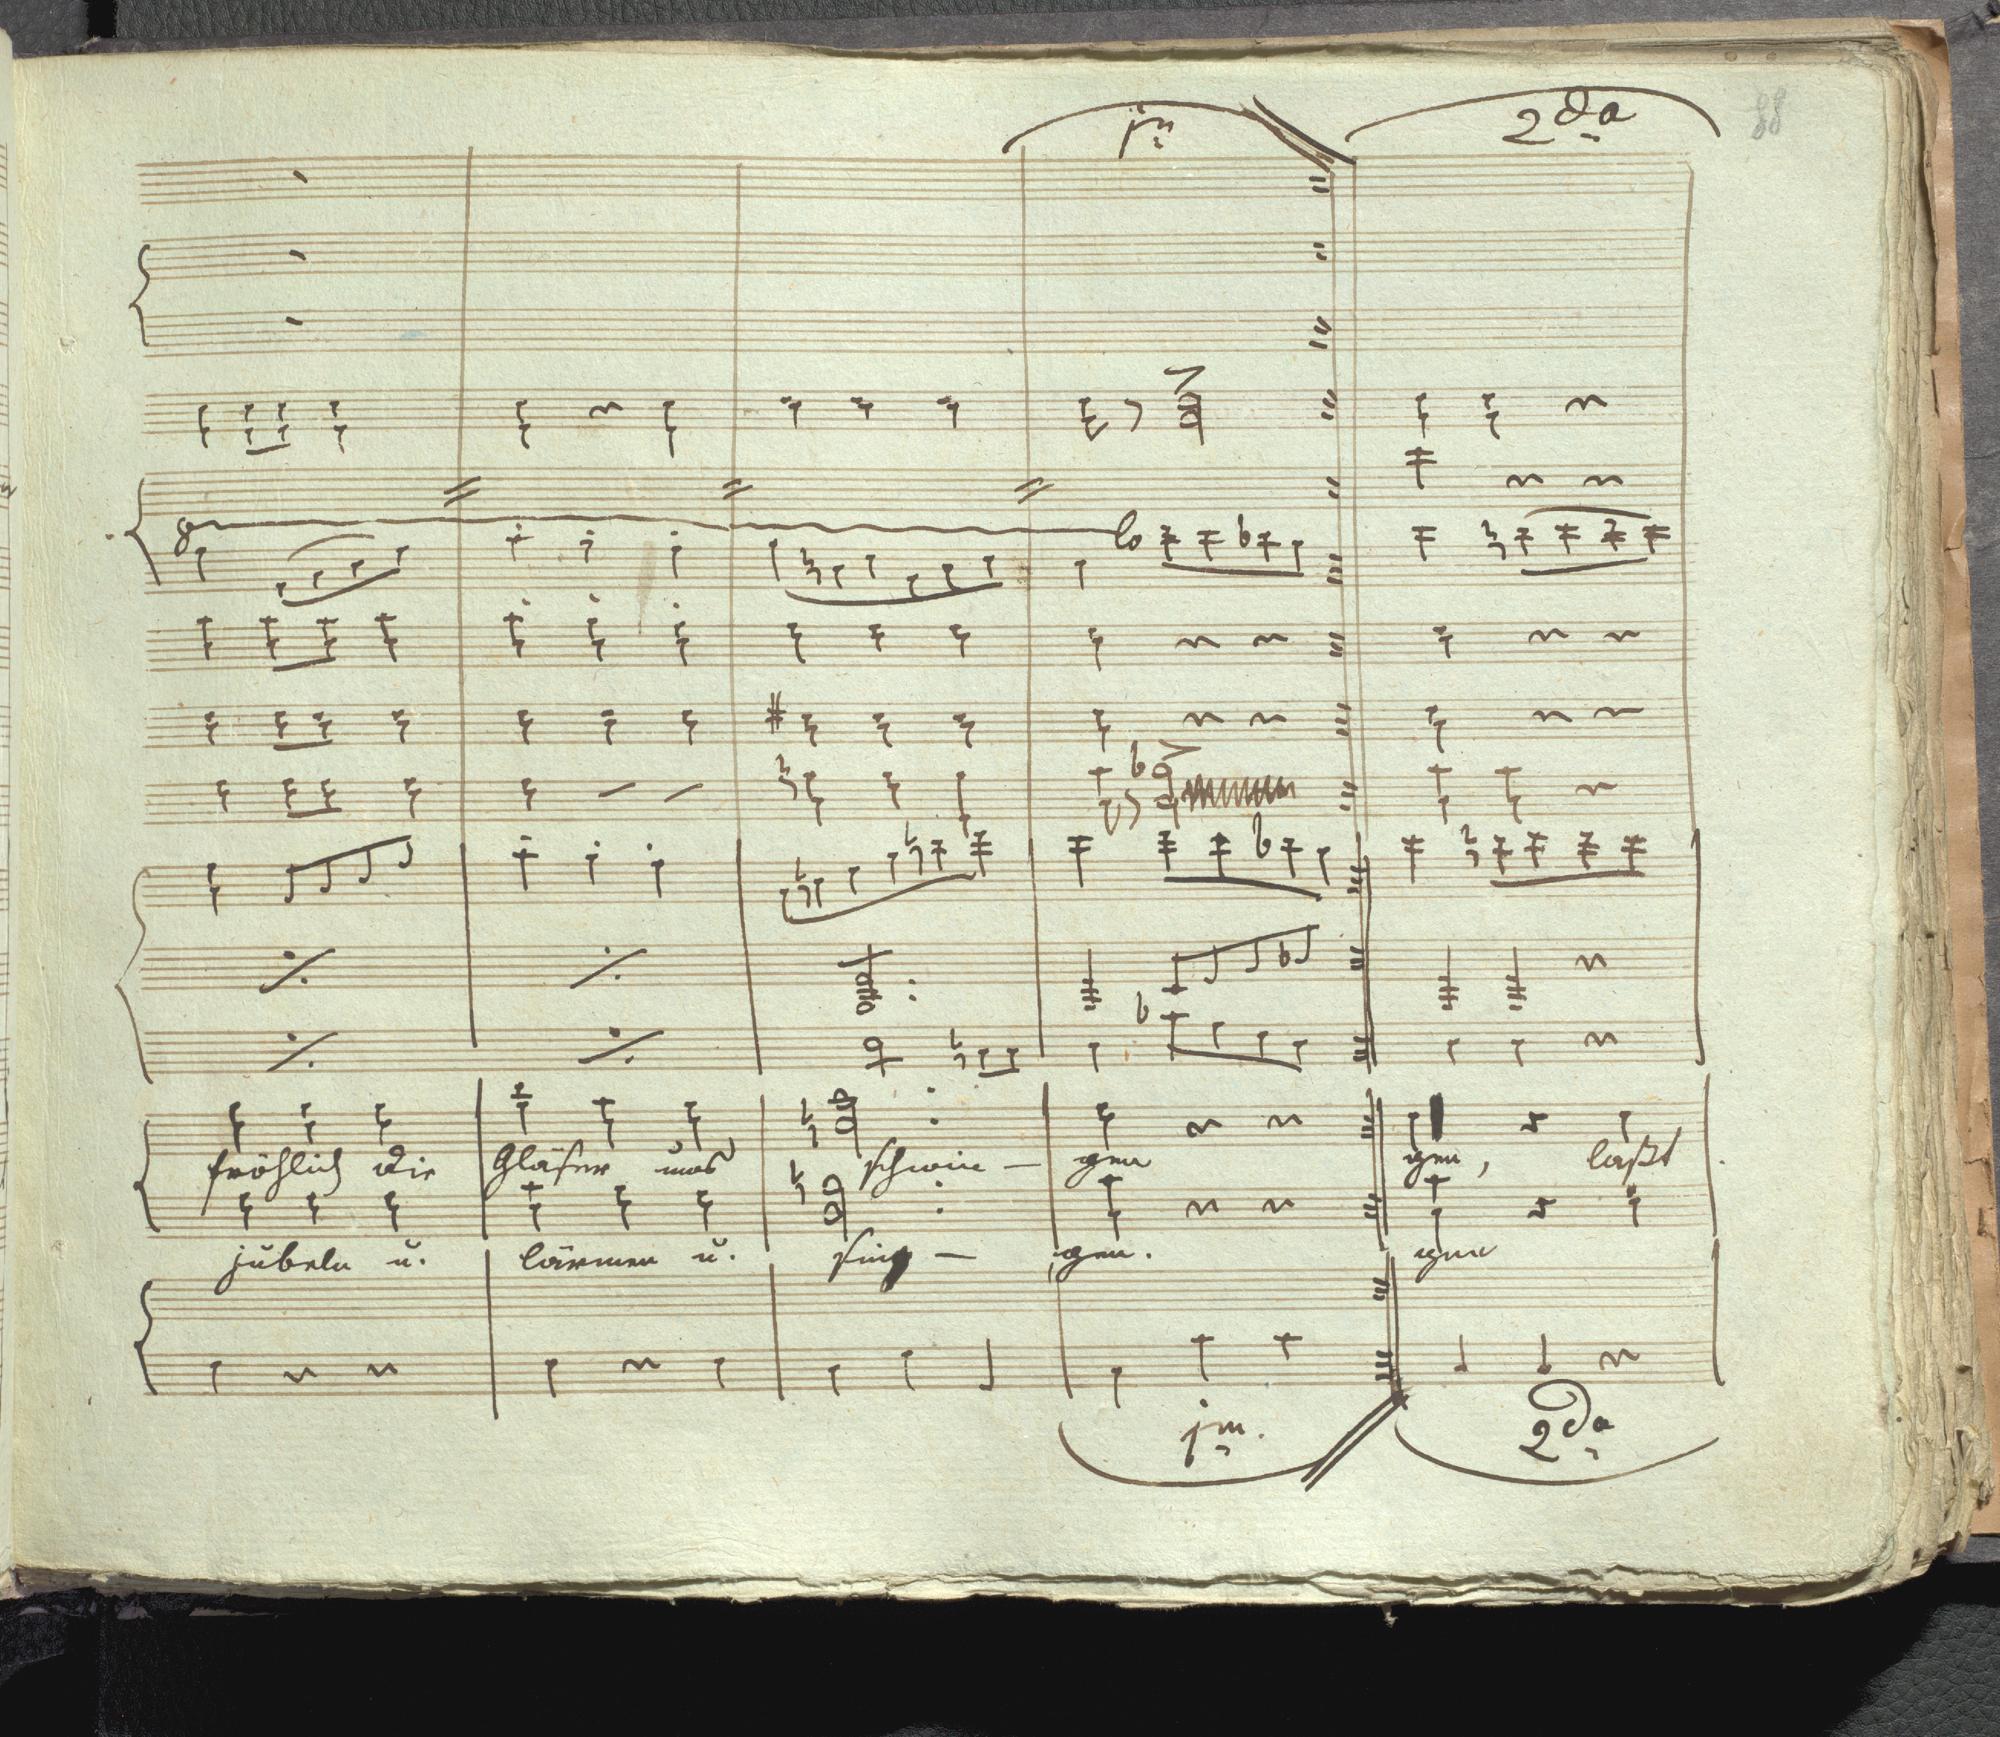 1m 2da 88
8 lo
fröhlich die Gläser uns schwin – gen gen, laßt
jubeln u. lärmen u. sing – gen. gen
1m. 2da